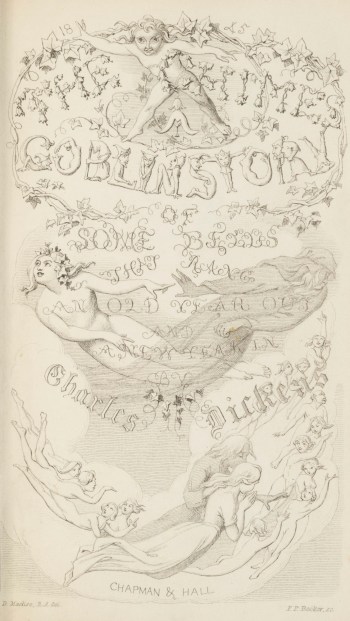 THE CHIMES
A
GOBLIN STORY
OF
SOME BELLS
THAT RANG
AN OLD YEAR OUT
AND
A NEW YEAR IN
BY
Charles Dickens
CHAPMAN & HALL
D. Maclise, R.A. del.
F. P. Becker, sc.